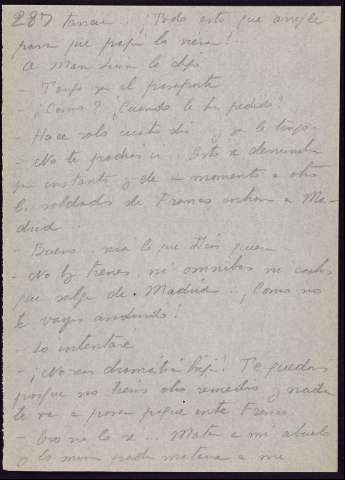 287 tarian... ¡Todo esto que arregle
para que papá lo viera!..
A Mari Luisa le dije
- Tengo ya el pasaporte
- ¿Como? ¿Cuando le has pedido?
- Hace solo cuatro dias y ya le tengo
- No te podrás ir. Esto se derrumba
por instantes y de un momento a otro
los soldados de Franco entran en Ma-
drid
- Bueno.. sea lo que Dios quiera
- No hay trenes, ni omnibus ni coches
que salga de Madrid... ¡Como no
te vayas andando!
- Lo intentaré
- ¡No seas dramática hija! Te quedas
porque no tienes otro remedio y nada
te va a pasar porque entre Franco.
- Eso no lo se... Mató a mi abuelo
y lo mismo podia matarme a mi